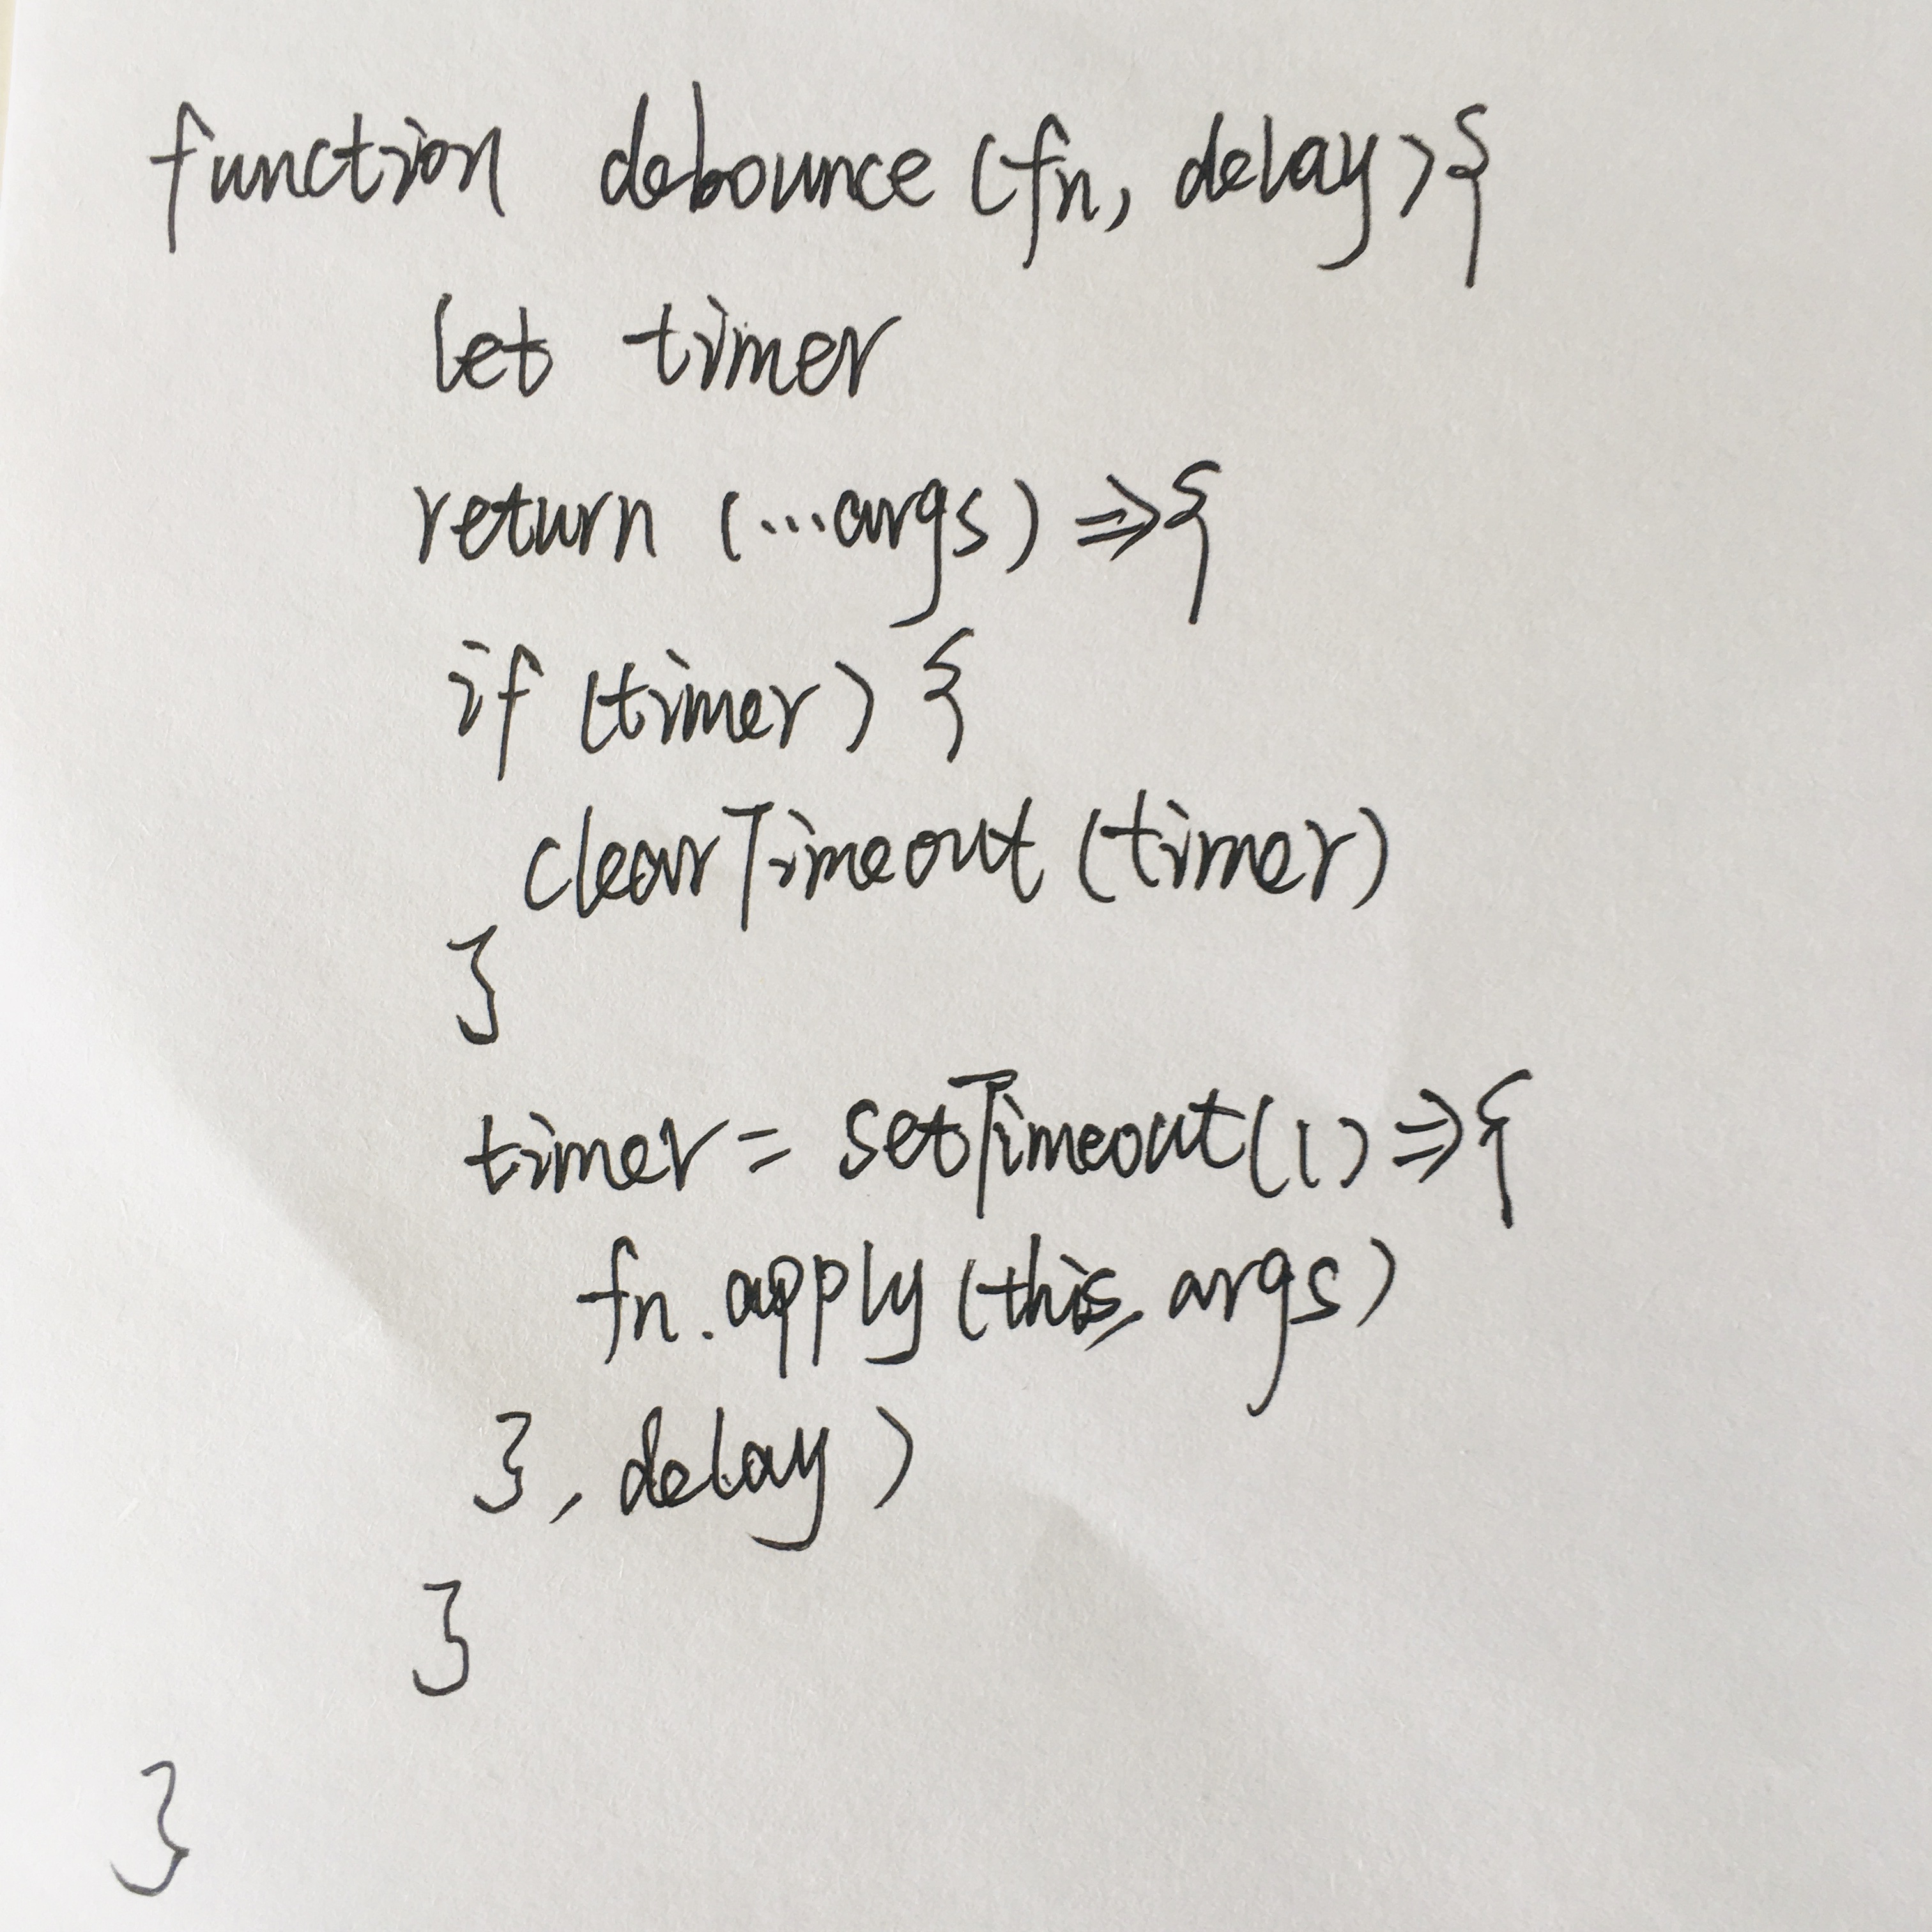 function debounce (fn, delay) {
let timer
return (...args) => {
if (timer) {
clearTimeout (timer)
}
timer = setTimeout(() => {
fn.apply (this, args)
}, delay)
}
}